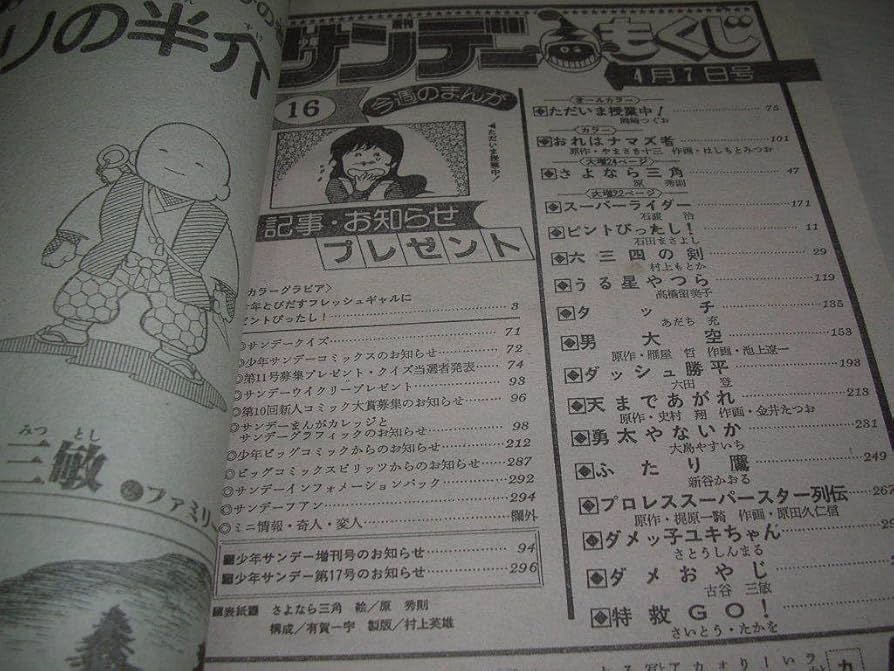 リの半介
三敏
みつ とし
ファミリ
週刊
少年
サンデー
もくじ
4月7日号
16
今週のまんが
ただいま授業中!
記事・お知らせ
プレゼント
カラーグラビア〉
年とびだすフレッシュギャルに
ピントぴったし!……3
◎サンデークイズ……71
◎少年サンデーコミックスのお知らせ……72
◎第11号募集プレゼント・クイズ当選者発表……74
◎サンデーウイクリープレゼント……93
◎第10回新人コミック大賞募集のお知らせ……96
◎サンデーまんがカレッジと
サンデーグラフィックのお知らせ……98
◎少年ビッグコミックからのお知らせ……212
◎ビッグコミックスピリッツからのお知らせ……287
◎サンデーインフォメーションパック……292
◎サンデーフアン……294
◎ミニ情報・奇人・変人……欄外
■少年サンデー増刊号のお知らせ……94
■少年サンデー第17号のお知らせ……296
■表紙■ さよなら三角 絵/原 秀則
構成/有賀一宇 製版/村上英雄
オールカラー
◆ただいま授業中!……75
岡崎つぐお
カラー
◆おれはナマズ者……101
原作・やまさき十三 作画・はしもとみつお
大増24ページ
◆さよなら三角……47
原 秀則
大増22ページ
◆スーパーライダー……171
石渡 治
◆ピントぴったし!……11
石田まさよし
◆六三四の剣……29
村上もとか
◆うる星やつら……119
高橋留美子
◆タッチ……135
あだち 充
◆男大空……153
原作・雁屋 哲 作画・池上遼一
◆ダッシュ勝平……193
六田 登
◆天まであがれ……213
原作・史村 翔 作画・金井たつお
◆勇太やないか……231
大島やすいち
◆ふたり鷹……249
新谷かおる
◆プロレススーパースター列伝……267
原作・梶原一騎 作画・原田久仁信
◆ダメッ子ユキちゃん
さとうしんまる
◆ダメおやじ
古谷 三敏
◆特救GO!
さいとう・たかを